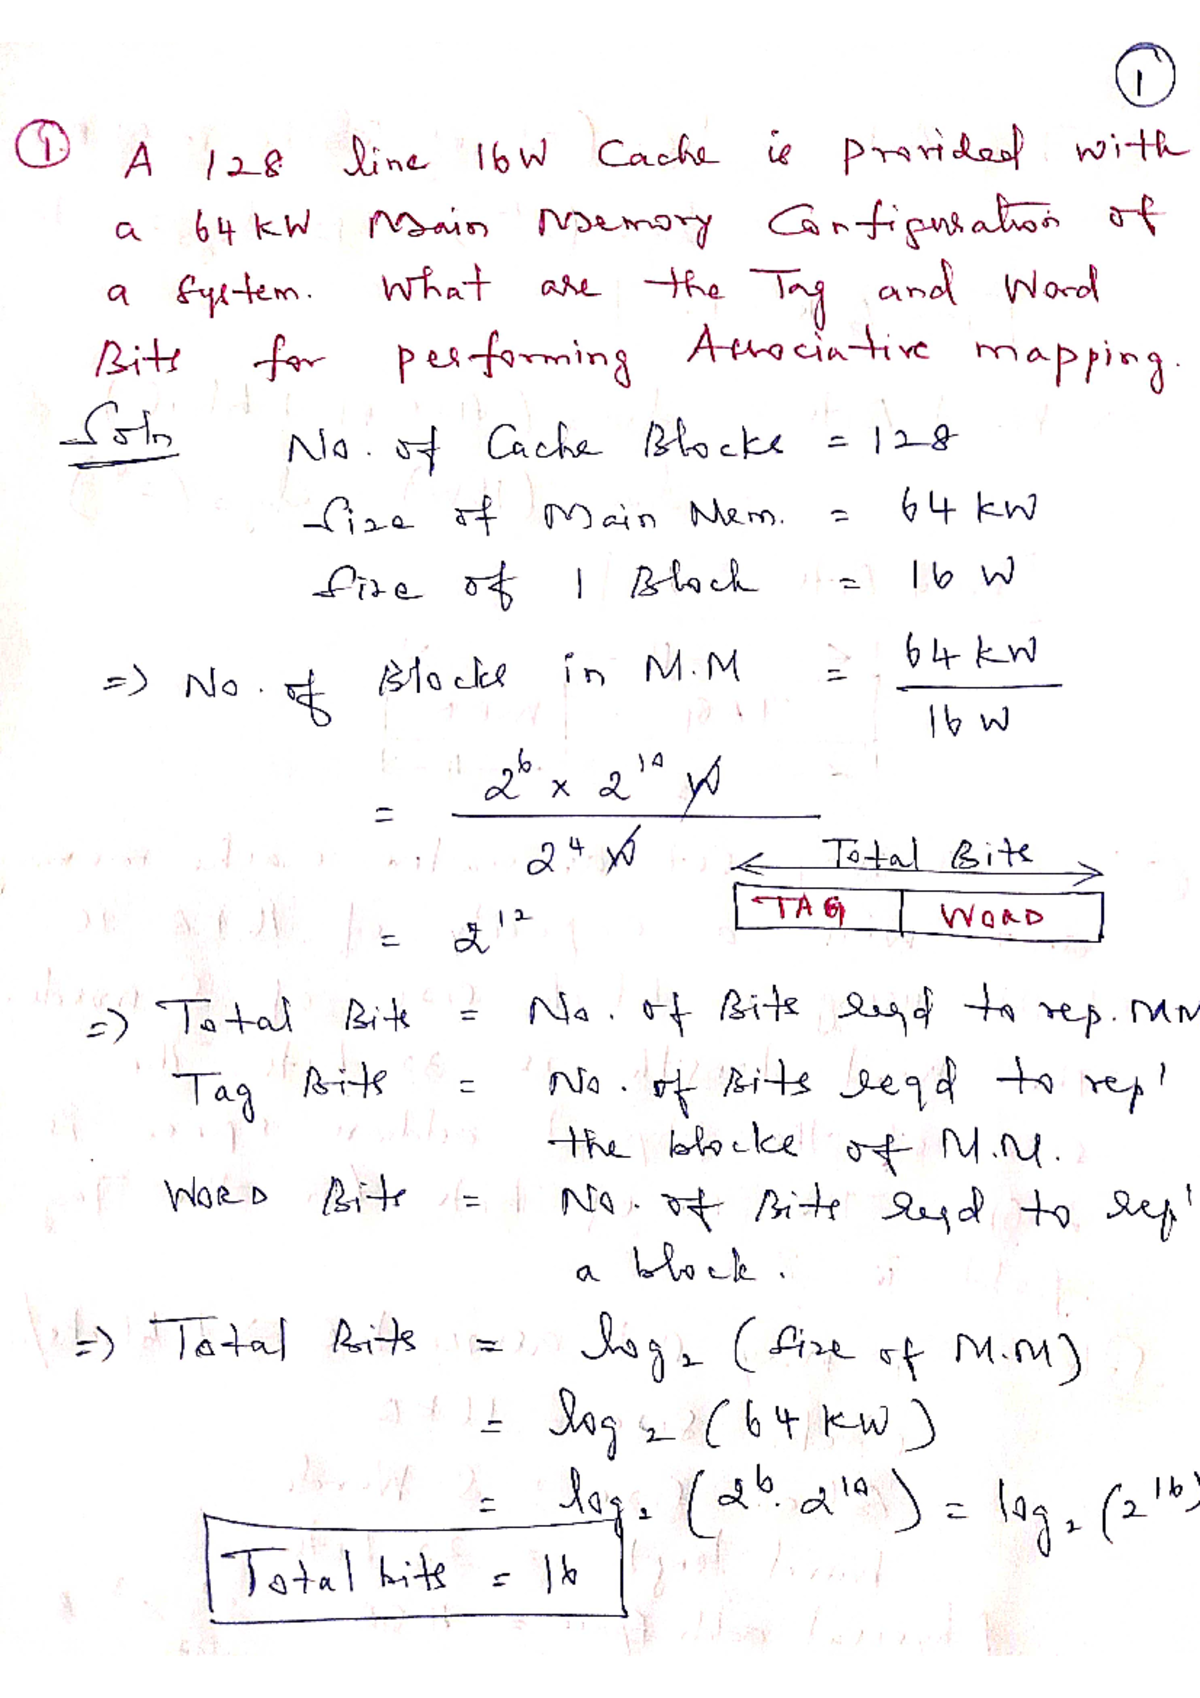 1
1. A 128 line 16W Cache is provided with
a 64 KW Main Memory Configuration of
a system. What are the Tag and Word
Bits for performing Associative mapping.
Soln No. of Cache Blocks = 128
Size of Main Mem. = 64 KW
Size of 1 Block = 16 W
=> No. of Blocks in M.M = 64 KW / 16 W
= 2^6 x 2^10 W / 2^4 W
Total Bits
TAG | WORD
= 2^12
=> Total Bits = No. of Bits reqd to rep. MM
Tag Bits = No. of Bits reqd to rep'
the blocks of M.M.
WORD Bits = No. of Bits reqd to rep'
a block.
=> Total Bits = log2 (Size of M.M)
= log2 (64 KW)
= log2 (2^6 . 2^10) = log2 (2^16)
Total bits = 16